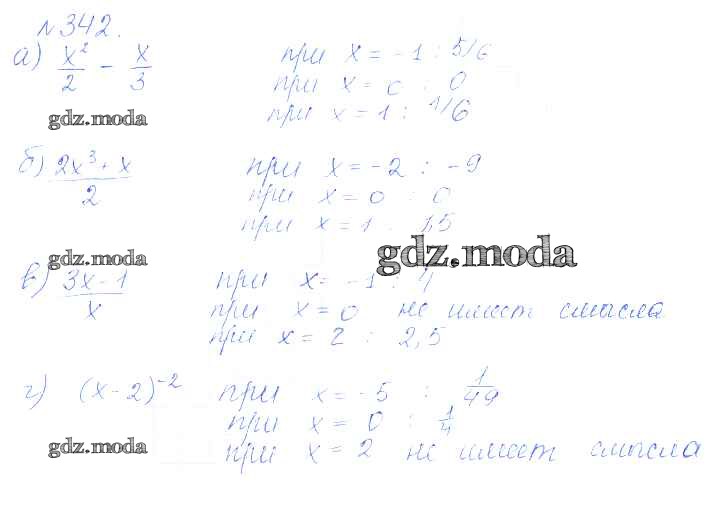 № 342.
а) x²/2 - x/3 при x = -1 : 5/6
при x = 0 : 0
gdz.moda при x = 1 : 1/6
б) 2x³ + x / 2 при x = -2 : -9
при x = 0 : 0
при x = 1 : 1,5
gdz.moda gdz.moda
в) 3x-1 / x при x = -1 : 4
при x = 0 не имеет смысла
при x = 2 : 2,5
г) (x-2)⁻² при x = -5 : 1/49
при x = 0 : 1/4
gdz.moda при x = 2 не имеет смысла